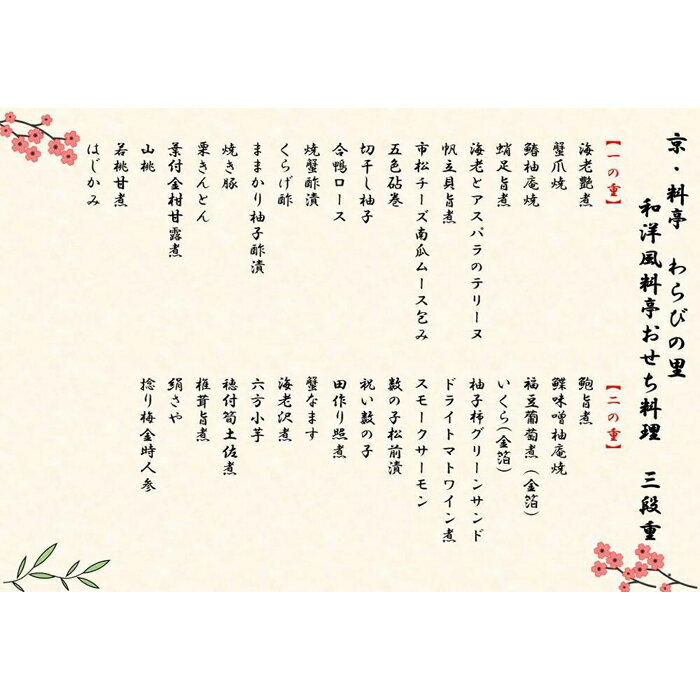 京・料亭 わらびの里
和洋風料亭おせち料理 三段重
【一の重】
海老艶煮
蟹爪焼
鰆柚庵焼
蛸足旨煮
海老とアスパラのテリーヌ
帆立貝旨煮
市松チーズ南瓜ムース包み
五色砧巻
切干し柚子
合鴨ロース
焼蟹酢漬
くらげ酢
ままかり柚子酢漬
焼き豚
栗きんとん
葉付金柑甘露煮
山桃
若桃甘煮
はじかみ
【二の重】
鮑旨煮
鰈味噌柚庵焼
福豆葡萄煮(金箔)
いくら(金箔)
柚子柿グリーンサンド
ドライトマトワイン煮
スモークサーモン
数の子松前漬
祝い数の子
田作り照煮
蟹なます
海老沢煮
六方小芋
穂付筍土佐煮
椎茸旨煮
絹さや
捻り梅金時人参